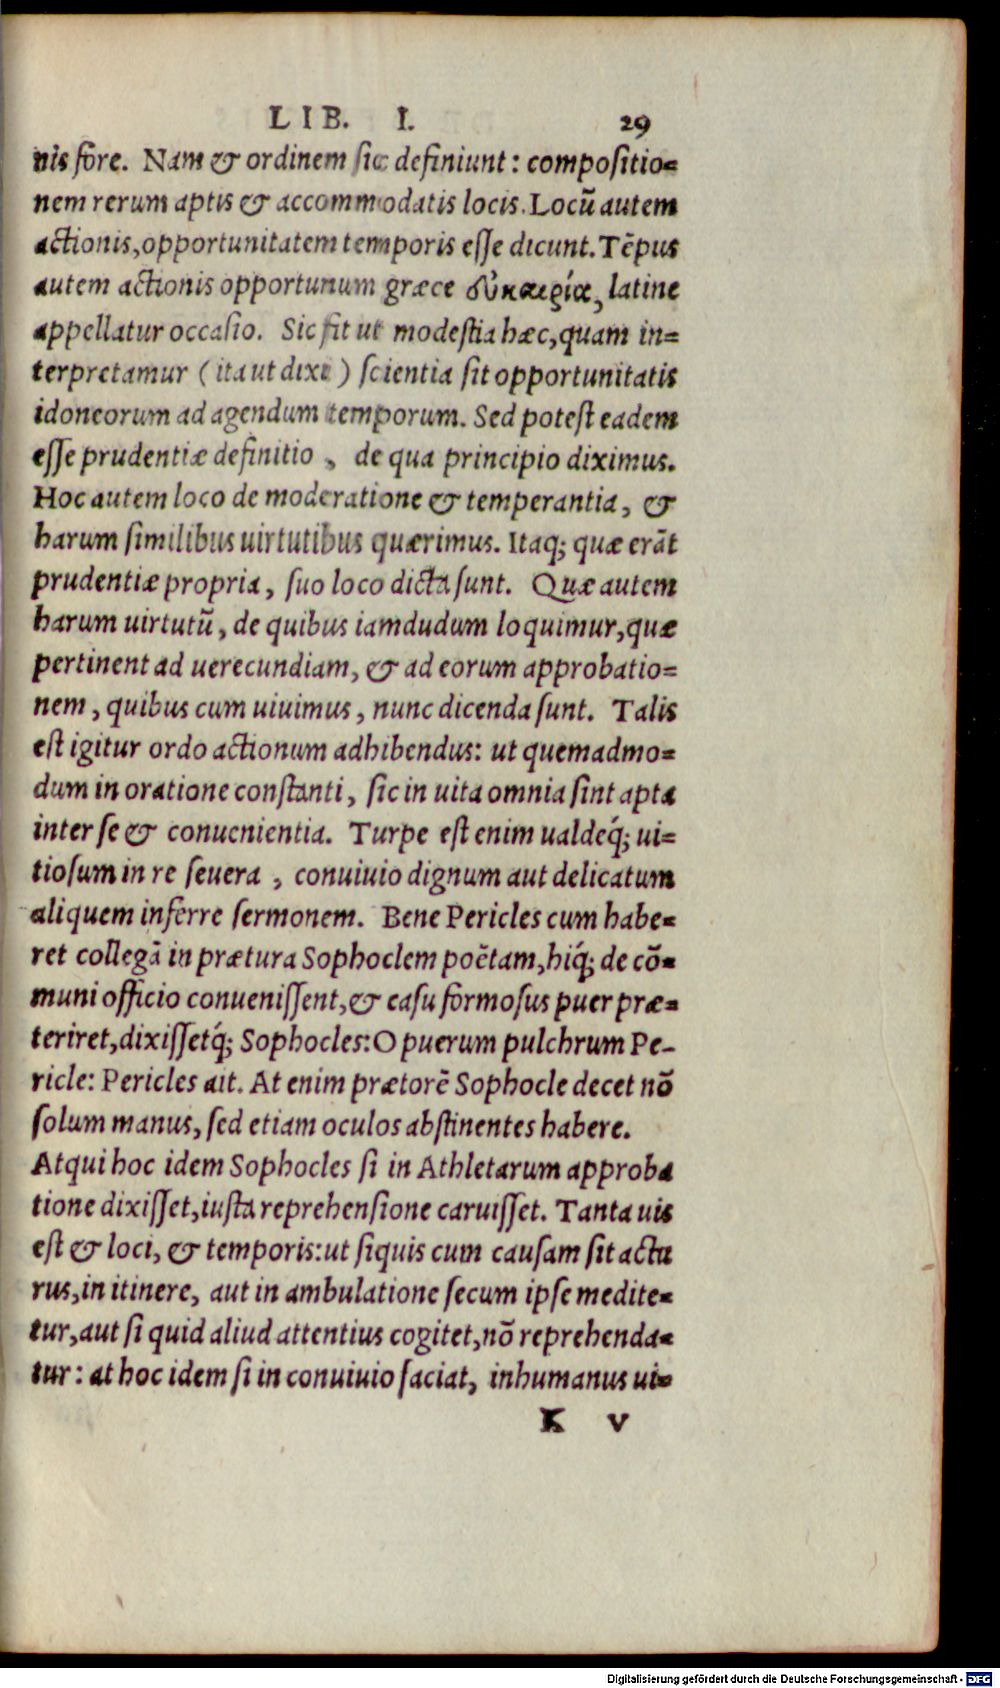 LIB. I. 29
nis fore. Nam & ordinem sic definiunt: compositio=
nem rerum aptis & accommodatis locis. Locū autem
actionis, opportunitatem temporis esse dicunt. Tēpus
autem actionis opportunum græce εὐκαιρία, latine
appellatur occasio. Sic fit ut modestia hæc, quam in=
terpretamur (ita ut dixi) scientia sit opportunitatis
idoneorum ad agendum temporum. Sed potest eadem
esse prudentiæ definitio, de qua principio diximus.
Hoc autem loco de moderatione & temperantia, &
harum similibus uirtutibus quærimus. Itaq; quæ erāt
prudentiæ propria, suo loco dicta sunt. Quæ autem
harum uirtutū, de quibus iamdudum loquimur, quæ
pertinent ad uerecundiam, & ad eorum approbatio=
nem, quibus cum uiuimus, nunc dicenda sunt. Talis
est igitur ordo actionum adhibendus: ut quemadmo=
dum in oratione constanti, sic in uita omnia sint apta
inter se & conuenientia. Turpe est enim ualdeq́; ui=
tiosum in re seuera, conuiuio dignum aut delicatum
aliquem inferre sermonem. Bene Pericles cum habe=
ret collegā in prætura Sophoclem poëtam, hiq́; de cō=
muni officio conuenissent, & casu formosus puer præ=
teriret, dixissetq́; Sophocles: O puerum pulchrum Pe-
ricle: Pericles ait. At enim prætorē Sophocle decet nō
solum manus, sed etiam oculos abstinentes habere.
Atqui hoc idem Sophocles si in Athletarum approba
tione dixisset, iusta reprehensione caruisset. Tanta uis
est & loci, & temporis: ut siquis cum causam sit actu
rus, in itinere, aut in ambulatione secum ipse medite=
tur, aut si quid aliud attentius cogitet, nō reprehenda=
tur: at hoc idem si in conuiuio faciat, inhumanus ui=
K v
Digitalisierung gefördert durch die Deutsche Forschungsgemeinschaft - DFG